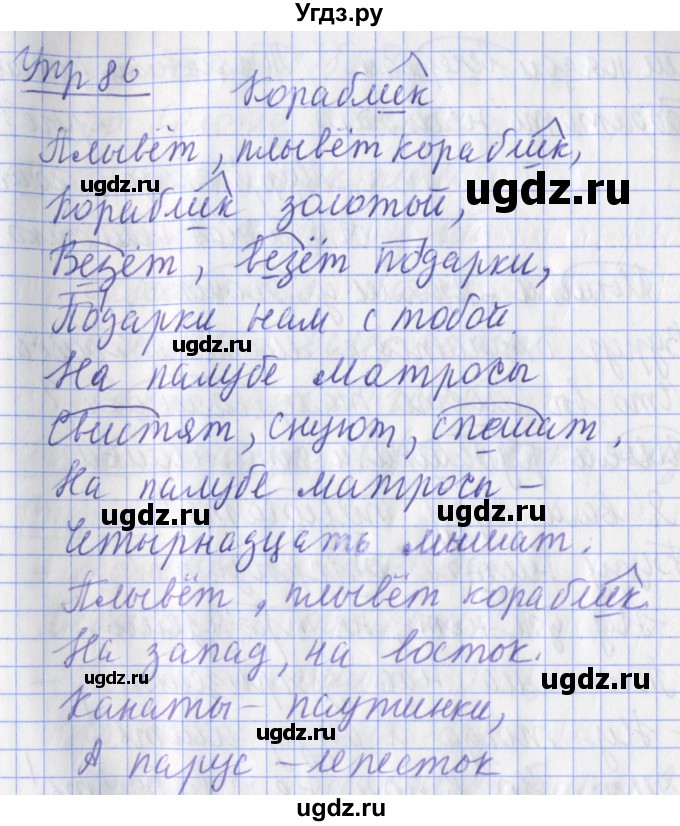 Угдз.ру
Упр 86
Кораблик
Плывёт, плывёт кораблик,
ugdz.ru
ugdz.ru
Кораблик золотой,
Везёт, везёт подарки,
Подарки нам с тобой.
ugdz.ru
На палубе матросы
Свистят, снуют, спешат,
ugdz.ru
На палубе матросы –
ugdz.ru
Четырнадцать мышат.
Плывёт, плывёт кораблик
На запад, на восток.
ugdz.ru
Канаты – паутинки,
ugdz.ru
А парус – лепесток
ugdz.ru